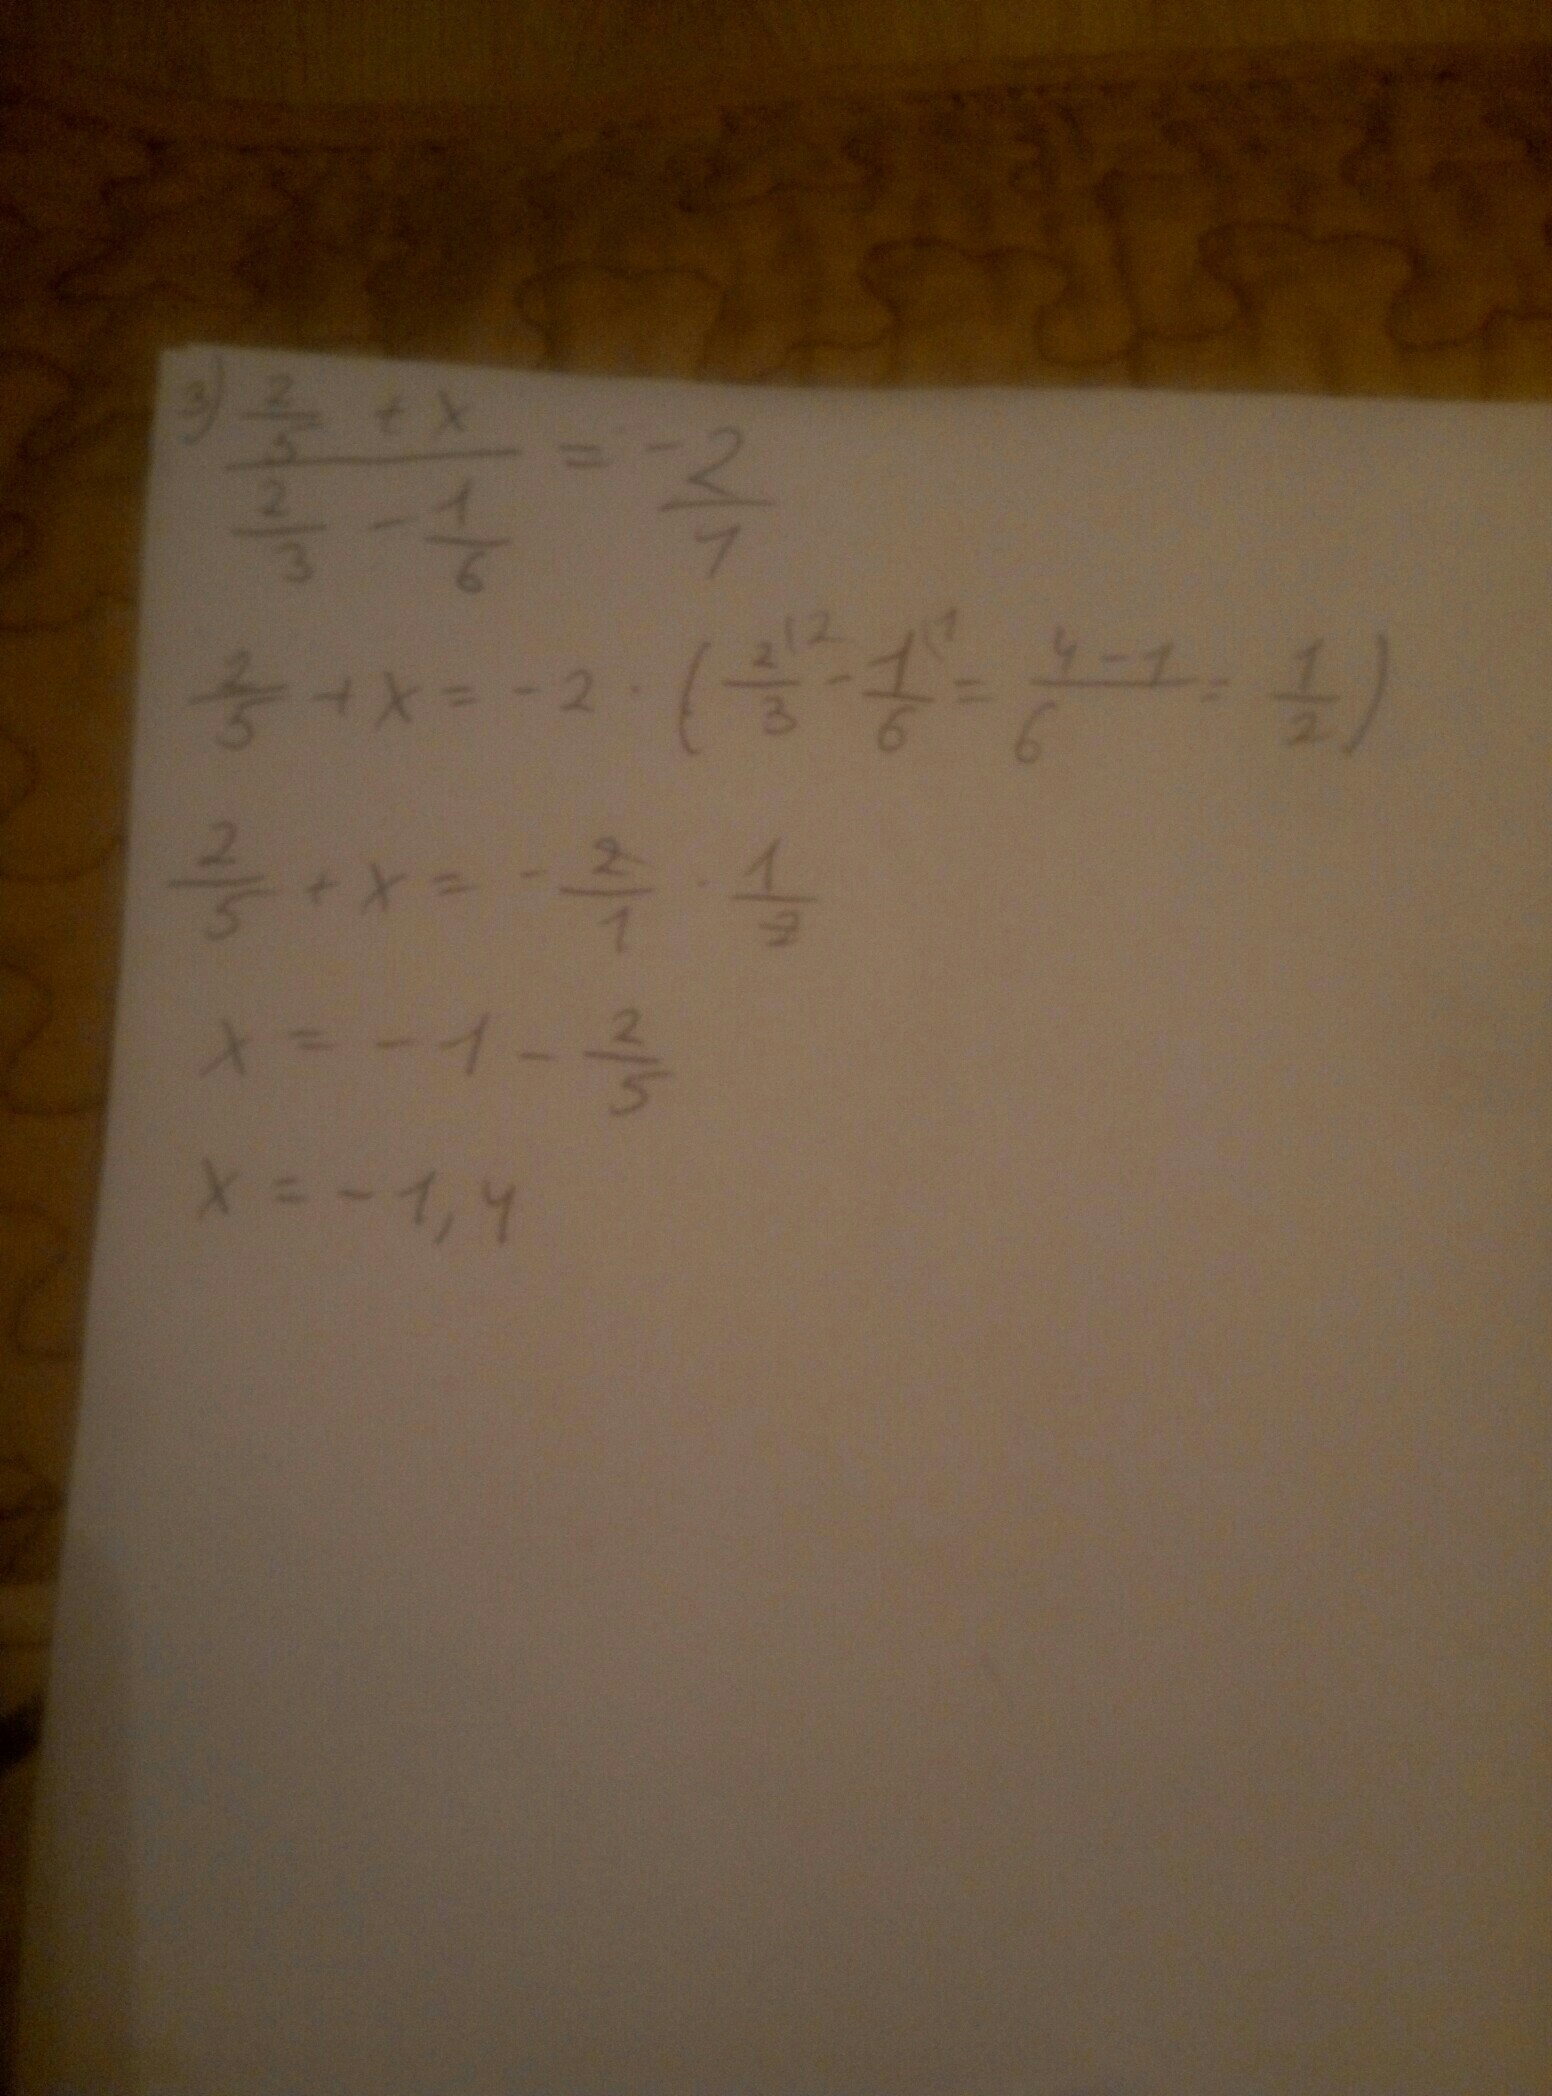 3) (2/5 + x)/(2/3 - 1/6) = -2/1
2/5 + x = -2 · (2/3^(2 - 1/6^(1 = 4-1/6 = 1/2)
2/5 + x = - 2/1 · 1/2
x = -1 - 2/5
x = -1,4